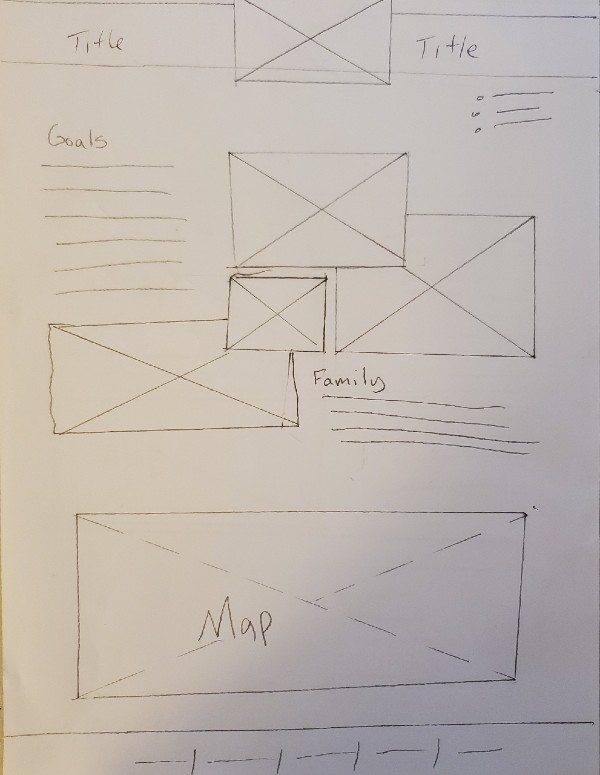 Title
Title
Goals
Family
Map